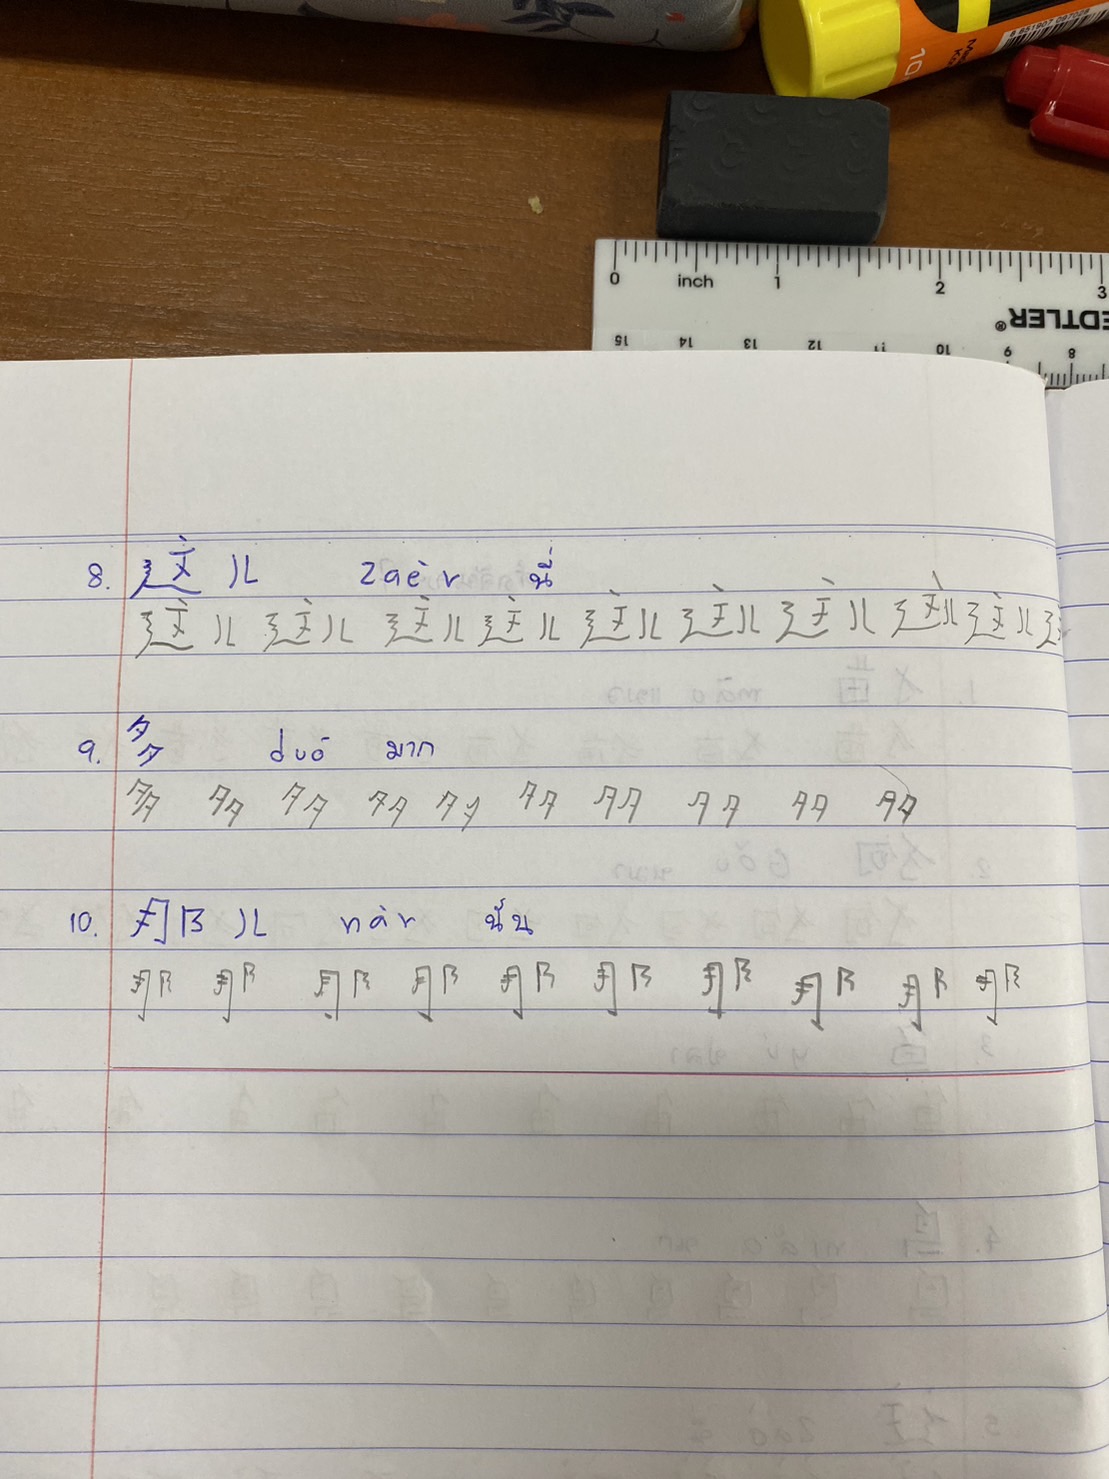 10
0 inch 1 2 3
STAEDTLER®
15 14 13 12 11 10 9 8
8. 这儿 zaèr นี่
这儿 这儿 这儿 这儿 这儿 这儿 这儿 这儿 这儿
9. 多 duō มาก
多 多 多 多 多 多 多 多 多 多
10. 那儿 nàr นั่น
那 那 那 那 那 那 那 那 那 那